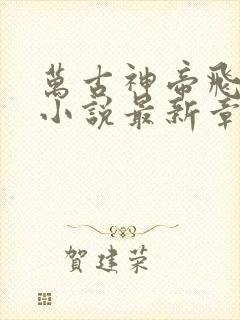 萬古神帝飛
小說最新章
賀建榮